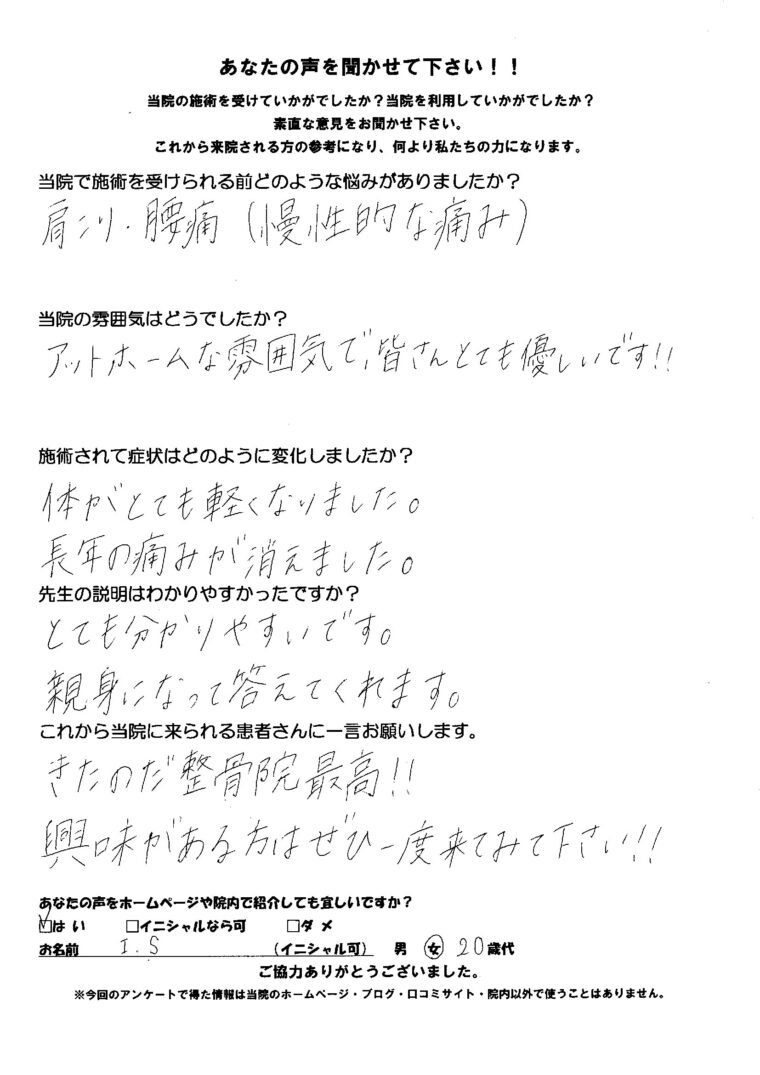 あなたの声を聞かせて下さい！！
当院の施術を受けていかがでしたか？当院を利用していかがでしたか？
素直な意見をお聞かせ下さい。
これから来院される方の参考になり、何より私たちの力になります。
当院で施術を受けられる前どのような悩みがありましたか？
肩こり・腰痛（慢性的な痛み）
当院の雰囲気はどうでしたか？
アットホームな雰囲気で、皆さんとても優しいです!!
施術されて症状はどのように変化しましたか？
体がとても軽くなりました。
長年の痛みが消えました。
先生の説明はわかりやすかったですか？
とても分かりやすいです。
親身になって答えてくれます。
これから当院に来られる患者さんに一言お願いします。
きたのだ整骨院最高!!
興味がある方はぜひ一度来てみて下さい!!
あなたの声をホームページや院内で紹介しても宜しいですか？
☑はい　□イニシャルなら可　□ダメ
お名前　I.S　（イニシャル可）　男　女　20歳代
ご協力ありがとうございました。
※今回のアンケートで得た情報は当院のホームページ・ブログ・口コミサイト・院内以外で使うことはありません。